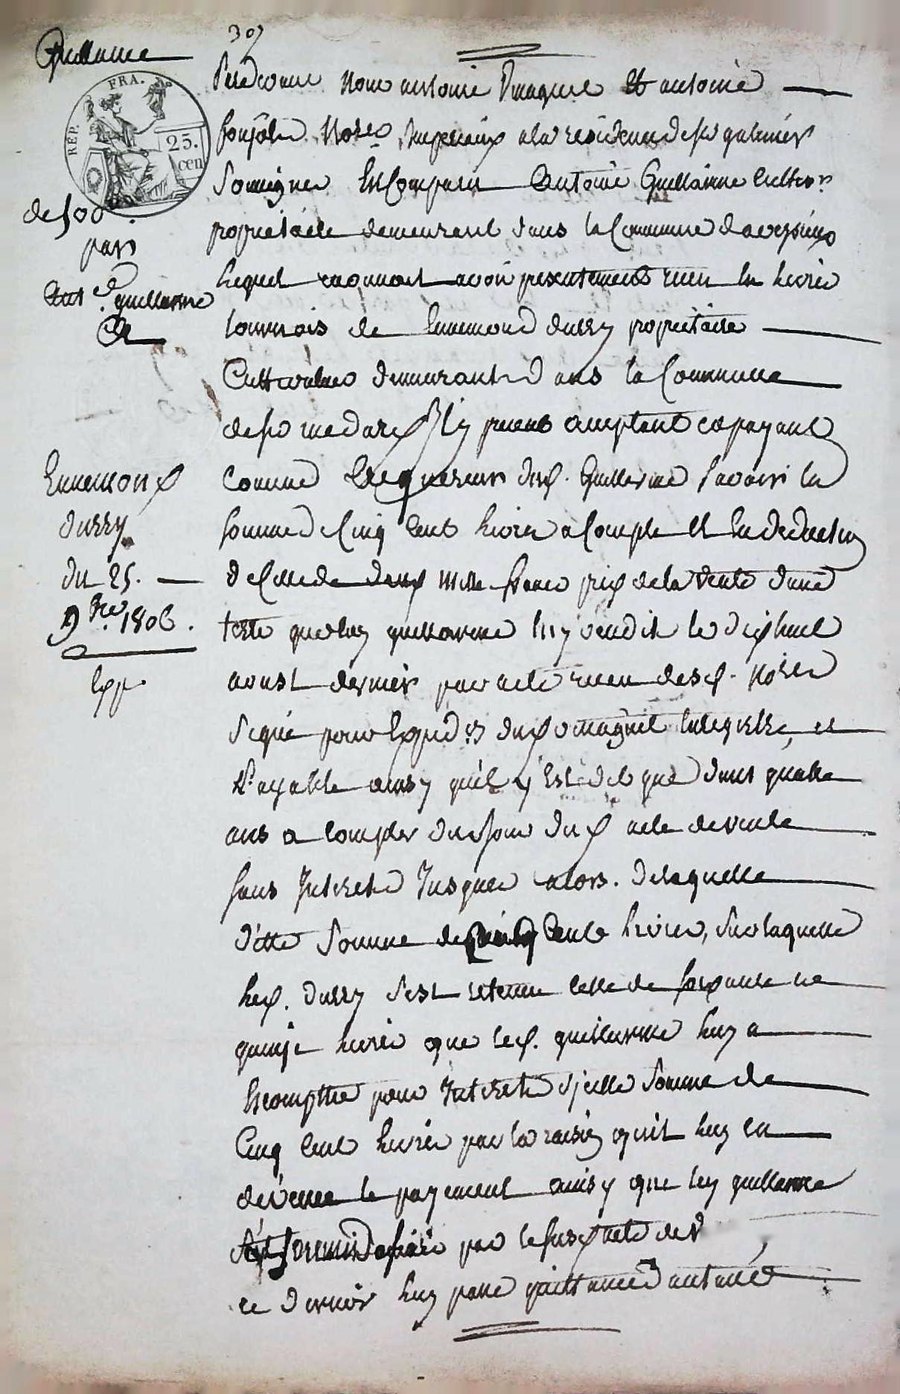 307
Quittance
RÉP. FRA.
25.
cen
de 500
par
Ant.e guillerme
a
Ennemond
durry
du 25.
9bre 1806.
Exp
Pardevant Nous antoine et antoine
No.res Imperiaux a la residence de galmier
Soussignés Est Comparu Antoine Guillerme Cultiv.r
proprietaire demeurant dans la Commune d
Lequel reconnoit avoir presentement reçu en livres
tournois de Ennemond durry proprietaire
Cultivateur demeurant dans la Commune
de st medard Icy present acceptant et payant
Comme acquereur dud. Guillerme Savoir la
Somme de Cinq Cent livres a Compte et en deduction
de Celle de deux Mille francs prix de la Vente d'une
terre que led guillerme luy vendit le dix huit
aoust dernier par acte reçu desd. Nores
Signé pour Expedon enregistré, et
Payable ainsy qu'il y Est dit que dans quatre
ans a Compter du Jour dud acte de vente
Sans Interets Jusques alors. de laquelle
ditte Somme de Cinq Cents livres, Sur laquelle
led. durry s'est retenu Celle de soixante
quinze livres que led. guillerme luy a
Escompttée pour Interets d'icelle Somme de
Cinq Cent livres par la raison qu'il luy en
devance le payement ainsy que led guillerme
par le susd acte de
ce dernier luy passe quittance d'autant